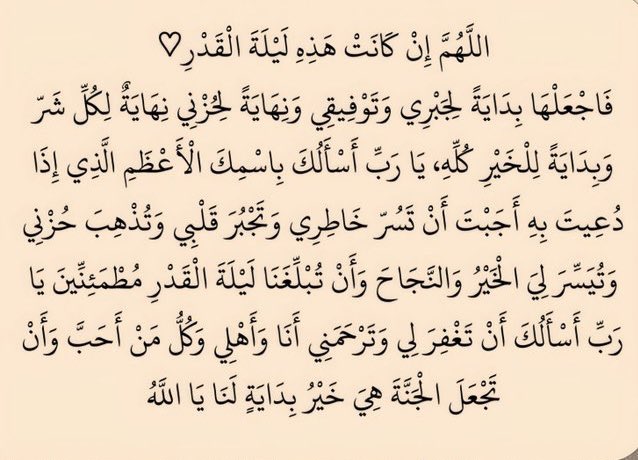 اللَّهُمَّ إِنْ كَانَتْ هَذِهِ لَيْلَةَ الْقَدْرِ♡
فَاجْعَلْهَا بِدَايَةً لِجَبْرِي وَتَوْفِيقِي وَنِهَايَةً لِحُزْنِي نِهَايَةٌ لِكُلِّ شَرّ
وَبِدَايَةً لِلْخَيْرِ كُلِّه، يَا رَبِّ أَسْأَلُكَ بِاسْمِكَ الْأَعْظَمِ الَّذِي إِذَا
دُعِيتَ بِهِ أَجَبْتَ أَنْ تَسُرّ خَاطِرِي وَتَجْبُرَ قَلْبِي وَتُذْهِبَ حُزْنِي
وَتُيَسِّرَ لِيَ الْخَيْرُ وَالنَّجَاحَ وَأَنْ تُبْلِّغَنَا لَيْلَةَ الْقَدْرِ مُطْمَئِنِّينَ يَا
رَبِّ أَسْأَلُكَ أَنْ تَغْفِرَ لِي وَتَرْحَمَنِي أَنَا وَأَهْلِي وَكُلُّ مَنْ أَحَبَّ وَأَنْ
تَجْعَلَ الْجَنَّةَ هِيَ خَيْرُ بِدَايَةٍ لَنَا يَا اللَّهُ